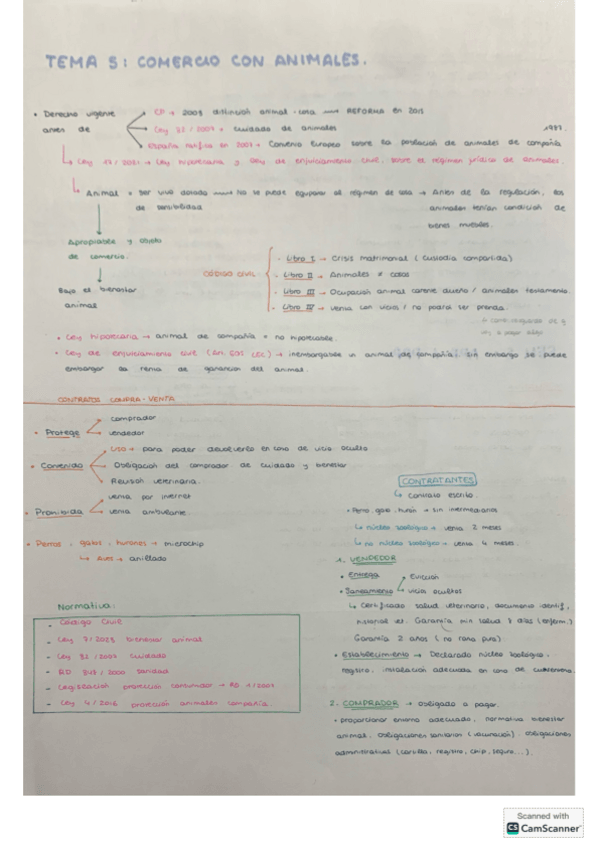 TEMA 5: COMERCIO CON ANIMALES.
• Derecho vigente antes de
CP → 2003 distinción animal-cosa → REFORMA en 2015
Ley 32/2007 → cuidado de animales
España ratifica en 2017 → Convenio Europeo sobre la protección de animales de compañía 1987.
Ley 17/2021 → Ley hipotecaria y Ley de enjuiciamiento civil, sobre el régimen jurídico de animales.
Animal = ser vivo dotado de sensibilidad → No se puede equiparar al régimen de cosa → Antes de la regulación, los
animales tenían condición de
bienes muebles.
Apropiable y objeto
de comercio.
Bajo el bienestar
animal
CÓDIGO CIVIL
- Libro I → Crisis matrimonial (custodia compartida)
- Libro II → Animales ≠ cosas
- Libro III → Ocupación animal carente dueño / animales testamento.
- Libro IV → venta con vicios / no podrá ser prenda.
• Ley hipotecaria → animal de compañía = no hipotecable.
• Ley de enjuiciamiento civil (Art. 605 LEC) → inembargable un animal de compañía. Sin embargo se puede
embargar la renta de ganancia del animal.
CONTRATOS COMPRA-VENTA
• Protege
comprador
vendedor
• Contenido
Uso → para poder devolverlo en caso de vicio oculto
Obligación del comprador de cuidado y bienestar
Revisión veterinaria.
• Prohibida
venta por internet
venta ambulante.
• Perros, gatos, hurones → microchip
↳ Aves → anillado
Normativa:
- Código Civil
- Ley 7/2023 bienestar animal
- Ley 32/2007 cuidado
- RD /2000 sanidad
- Legislación protección consumidor → RD 1/2007
- Ley 4/2016 protección animales compañía.
CONTRATANTES
↳ Contrato escrito.
• Perro, gato, hurón → sin intermediarios
↳ núcleo zoológico → venta 2 meses
↳ no núcleo zoológico → venta 4 meses.
1. VENDEDOR
• Entrega
• Saneamiento
evicción
vicios ocultos
↳ Certificado salud veterinario, documento identif,
historial vet. Garantía min salud días (enferm.)
Garantía 2 años (no raza pura).
• Establecimiento → Declarado núcleo zoológico,
registro, instalación adecuada en caso de cuarentena.
2. COMPRADOR → obligado a pagar.
• proporcionar entorno adecuado, normativa bienestar
animal, obligaciones sanitarias (vacunación), obligaciones
administrativas (cartilla, registro, chip, seguro...).
Scanned with
CS CamScanner